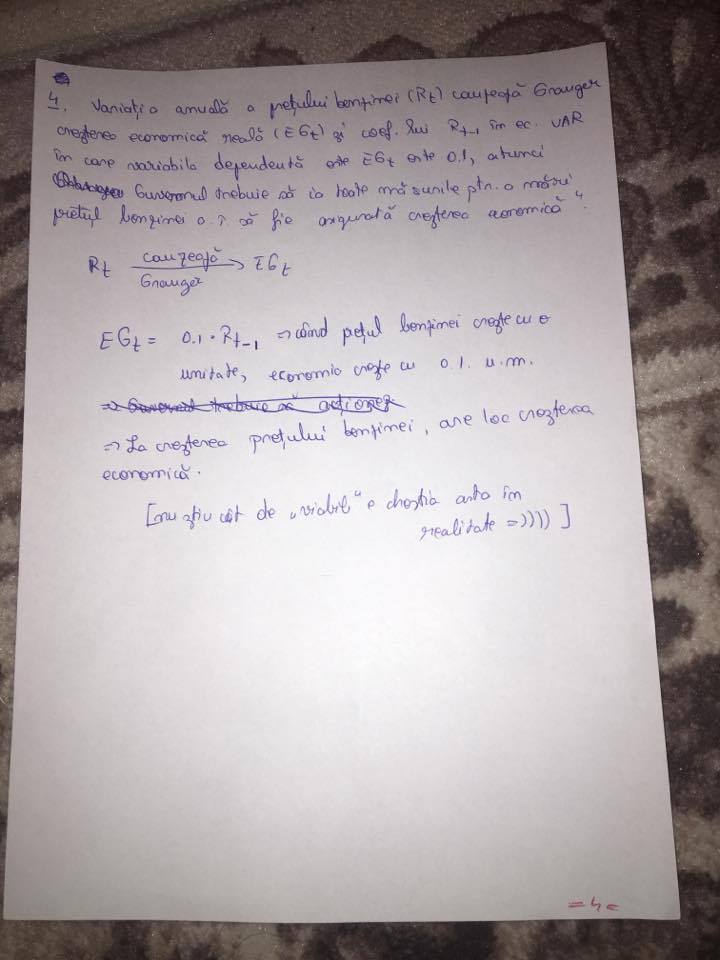 4. Variația anuală a prețului benzinei (Rt) cauzează Granger
creșterea economică reală (EGt) și coef. lui Rt-1 în ec. VAR
în care variabila dependentă este EGt este 0.1, atunci
Guvernul trebuie să ia toate măsurile ptr. a mări
prețul benzinei a.î. să fie asigurată creșterea economică".
Rt cauzează Granger → EGt
EGt = 0.1 · Rt-1 => când prețul benzinei crește cu o
unitate, economia crește cu 0.1 u.m.
=> Guvernul trebuie să acționeze
=> La creșterea prețului benzinei, are loc creșterea
economică.
[nu știu cât de „viabil" e chestia asta în
realitate =))))]
= 4 =